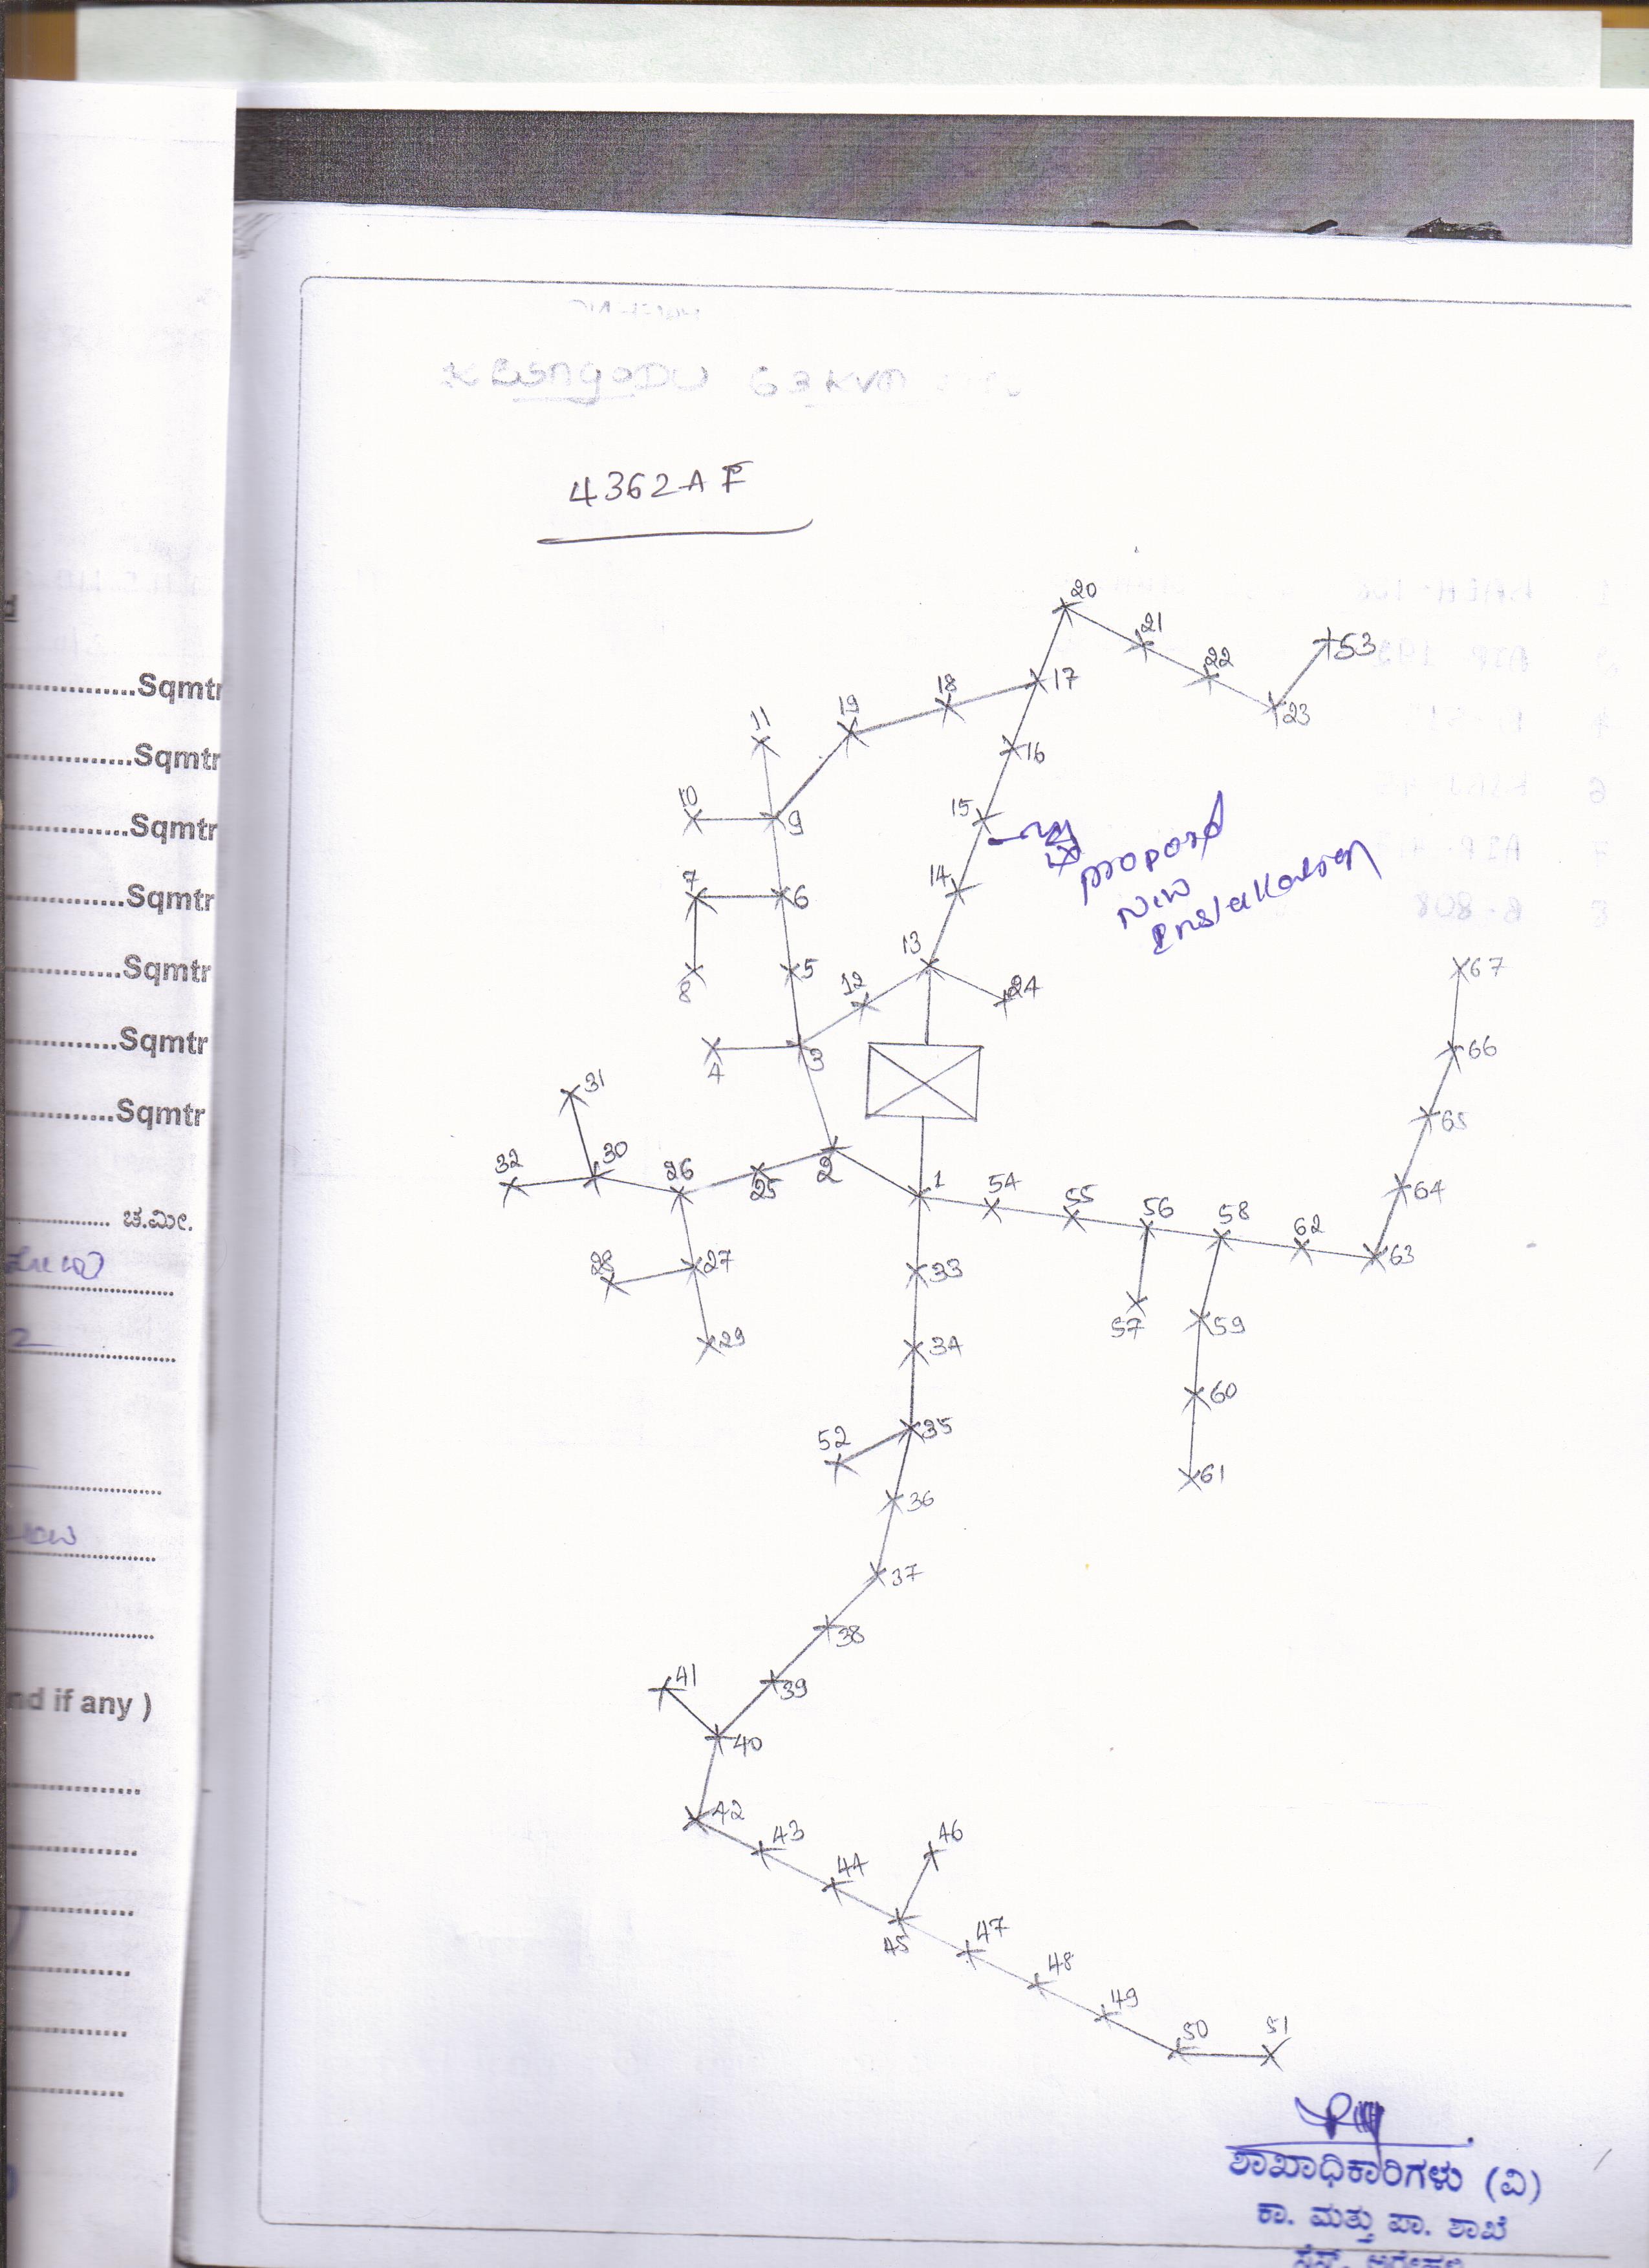 63 KVA
4362AF
20
21
53
22
17
18
23
19
11
16
10
15
9
proposed
New
Installation
14
7
6
13
67
5
12
8
24
3
66
4
31
65
30
2
32
26
64
25
1
54
55
56
58
62
63
27
33
28
59
57
29
34
60
35
52
61
36
37
38
41
39
40
42
43
46
44
45
47
48
49
50
51
ಶಾಖಾಧಿಕಾರಿಗಳು (ವಿ)
ಕಾ. ಮತ್ತು ಪಾ. ಶಾಖೆ
...............Sqmtr
...............Sqmtr
...............Sqmtr
...............Sqmtr
...............Sqmtr
...............Sqmtr
...............Sqmtr
............... ಚ.ಮೀ.
nd if any )